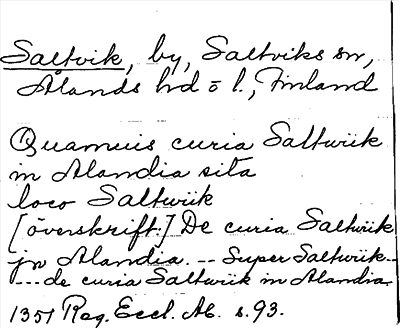 Saltvik, by, Saltviks sn,
Ålands hd o l., Finland
Quamuis curia Saltwiik
in Alandia sita
loco Saltwiik
[överskrift:] De curia Saltwiik
jn Alandia. -- Super Saltwiik--
--- de curia Saltwiik in Alandia.
1351 Reg. Eccl. Ab. s. 93.